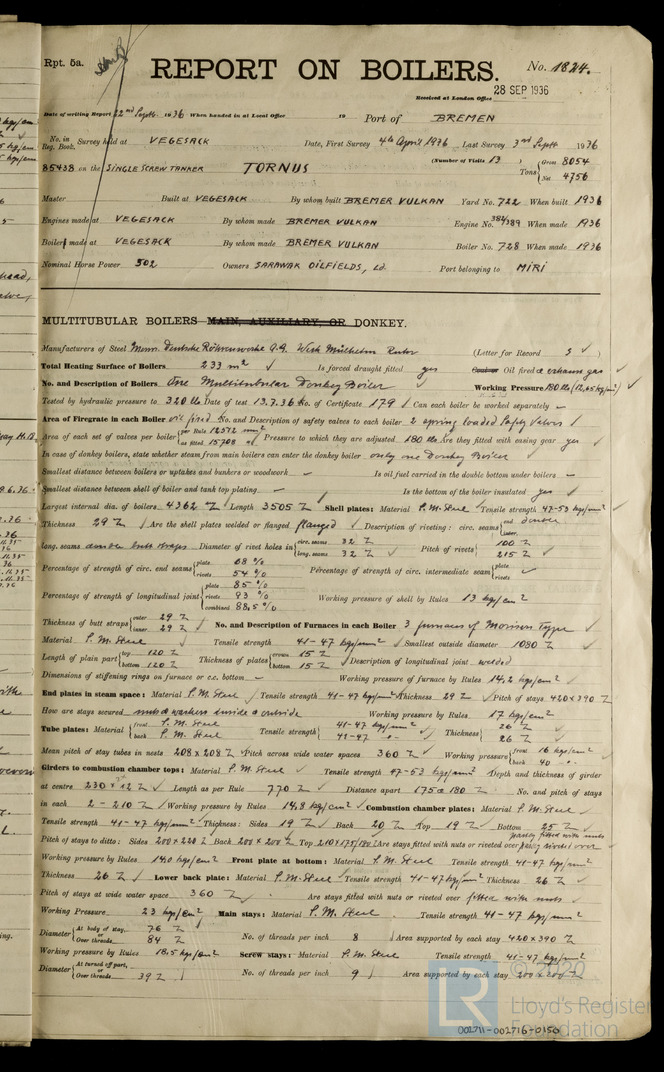 Rpt. 5a.
REPORT ON BOILERS.
No. 1824.
Received at London Office 28 SEP 1936
Date of writing Report 22nd Septr. 1936 When handed in at Local Office 19 Port of BREMEN
No. in Reg. Book. Survey held at VEGESACK Date, First Survey 4th April 1936 Last Survey 3rd Septr 1936
85438 on the SINGLE SCREW TANKER TORNUS (Number of Visits 13) Tons { Gross 8054 Net 4756
Master Built at VEGESACK By whom built BREMER VULKAN Yard No. 722 When built 1936
Engines made at VEGESACK By whom made BREMER VULKAN Engine No. 384/389 When made 1936
Boilers made at VEGESACK By whom made BREMER VULKAN Boiler No. 728 When made 1936
Nominal Horse Power 502 Owners SARAWAK OILFIELDS, Ld. Port belonging to MIRI
MULTITUBULAR BOILERS MAIN, AUXILIARY, OR DONKEY.
Manufacturers of Steel Mess. Deutsche Röhrenwerke A.G. Werk Mülheim Ruhr (Letter for Record S ✓)
Total Heating Surface of Boilers 233 m² ✓ Is forced draught fitted yes Oil fired & exhaust gas ✓
No. and Description of Boilers One Multitubular Donkey Boiler ✓ Working Pressure 180 lbs (12,65 kg/) ✓
Tested by hydraulic pressure to 320 lb Date of test 13.7.36 No. of Certificate 179 Can each boiler be worked separately –
Area of Firegrate in each Boiler oil fired No. and Description of safety valves to each boiler 2 spring loaded Safety Valves ✓
Area of each set of valves per boiler { per Rule 12572 mm² as fitted 15708 Pressure to which they are adjusted 180 lb Are they fitted with easing gear yes ✓
In case of donkey boilers, state whether steam from main boilers can enter the donkey boiler only one Donkey Boiler ✓
Smallest distance between boilers or uptakes and bunkers or woodwork – Is oil fuel carried in the double bottom under boilers –
Smallest distance between shell of boiler and tank top plating – Is the bottom of the boiler insulated yes ✓
Largest internal dia. of boilers 4362 Length 3505 Shell plates: Material S.M. Steel Tensile strength 47-53 kg/mm² ✓
Thickness 29 Are the shell plates welded or flanged flanged ✓ Description of riveting: circ. seams { end double inter.
long. seams double butt straps Diameter of rivet holes in { circ. seams 32 long. seams 32 Pitch of rivets { 100 215 ✓
Percentage of strength of circ. end seams { plate 68 % rivets 54 % Percentage of strength of circ. intermediate seam { plate rivets ✓
Percentage of strength of longitudinal joint { plate 85 % rivets 93 % combined 88,5 % Working pressure of shell by Rules 13 kg/cm²
Thickness of butt straps { outer 29 inner 29 No. and Description of Furnaces in each Boiler 3 furnaces of Morison Type ✓
Material S.M. Steel Tensile strength 41-47 kg/mm² Smallest outside diameter 1080 ✓
Length of plain part { top 120 bottom 120 Thickness of plates { crown 15 bottom 15 Description of longitudinal joint welded
Dimensions of stiffening rings on furnace or c.c. bottom – Working pressure of furnace by Rules 14,2 kg/cm²
End plates in steam space: Material S.M. Steel Tensile strength 41-47 kg/mm² Thickness 29 Pitch of stays 420 x 390
How are stays secured nuts & washers inside & outside Working pressure by Rules 17 kg/cm²
Tube plates: Material { front S.M. Steel back S.M. Steel Tensile strength { 41-47 kg/mm² 41-47 Thickness { 26 26
Mean pitch of stay tubes in nests 208 x 208 Pitch across wide water spaces 360 ✓ Working pressure { front 16 kg/cm² back 40
Girders to combustion chamber tops: Material S.M. Steel Tensile strength 47-53 kg/mm² Depth and thickness of girder
at centre 230 x 12 Length as per Rule 770 Distance apart 175 & 180 No. and pitch of stays
in each 2 – 210 Working pressure by Rules 14,8 kg/cm² Combustion chamber plates: Material S.M. Steel
Tensile strength 41-47 kg/mm² Thickness: Sides 19 Back 20 Top 19 Bottom 25
Pitch of stays to ditto: Sides 200 x 220 Back 200 x 200 Top 210 x 175/180 Are stays fitted with nuts or riveted over partly fitted with nuts partly riveted over
Working pressure by Rules 14,0 kg/cm² Front plate at bottom: Material S.M. Steel Tensile strength 41-47 kg/mm²
Thickness 26 Lower back plate: Material S.M. Steel Tensile strength 41-47 kg/mm² Thickness 26 ✓
Pitch of stays at wide water space 360 Are stays fitted with nuts or riveted over fitted with nuts ✓
Working Pressure 23 kg/cm² Main stays: Material S.M. Steel Tensile strength 41-47 kg/mm²
Diameter { At body of stay, 76 or Over threads 84 No. of threads per inch 8 Area supported by each stay 420 x 390
Working pressure by Rules 18,5 kg/cm² Screw stays: Material S.M. Steel Tensile strength 41-47 kg/mm²
Diameter { At turned off part, or Over threads 39 No. of threads per inch 9 Area supported by each stay 200 x 200
© 2020
LR Lloyd's Register Foundation
002711-002716-0150